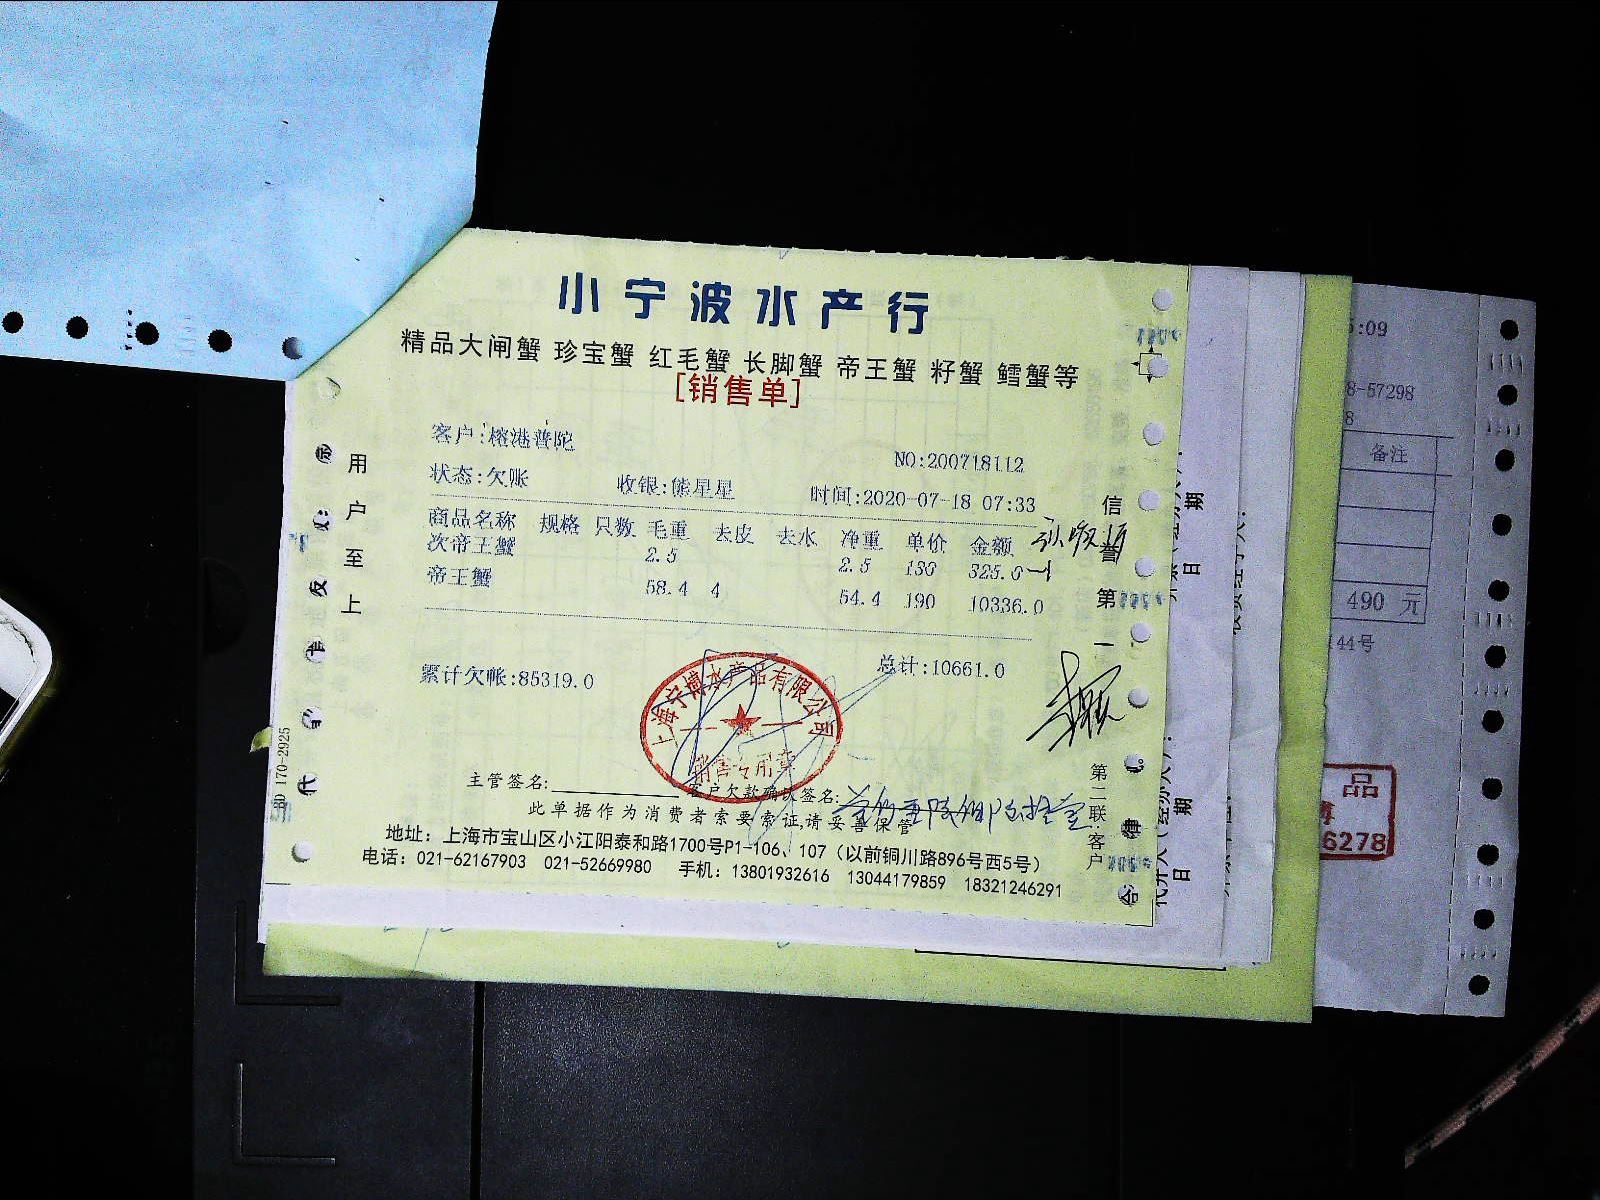 小宁波水产行
精品大闸蟹 珍宝蟹 红毛蟹 长脚蟹 帝王蟹 籽蟹 鳕蟹等
[销售单]
客户:榕港普陀
NO:200718112
状态:欠账 收银:熊星星 时间:2020-07-18 07:33
商品名称 规格 只数 毛重 去皮 去水 净重 单价 金额
次帝王蟹 2.5 2.5 130 325.0
帝王蟹 58.4 4 54.4 190 10336.0
累计欠帐:85319.0 总计:10661.0
上海宁博水产品有限公司
销售专用章
主管签名: 客户欠款确认签名:
此单据作为消费者索要索证,请妥善保管
地址：上海市宝山区小江阳泰和路1700号P1-106、107（以前铜川路896号西5号）
电话：021-62167903 021-52669980 手机：13801932616 13044179859 18321246291
用户至上
信誉第一
第二联:客户
170-2925
5:09
8-57298
8
备注
490 元
44号
品
6278
日期
日期